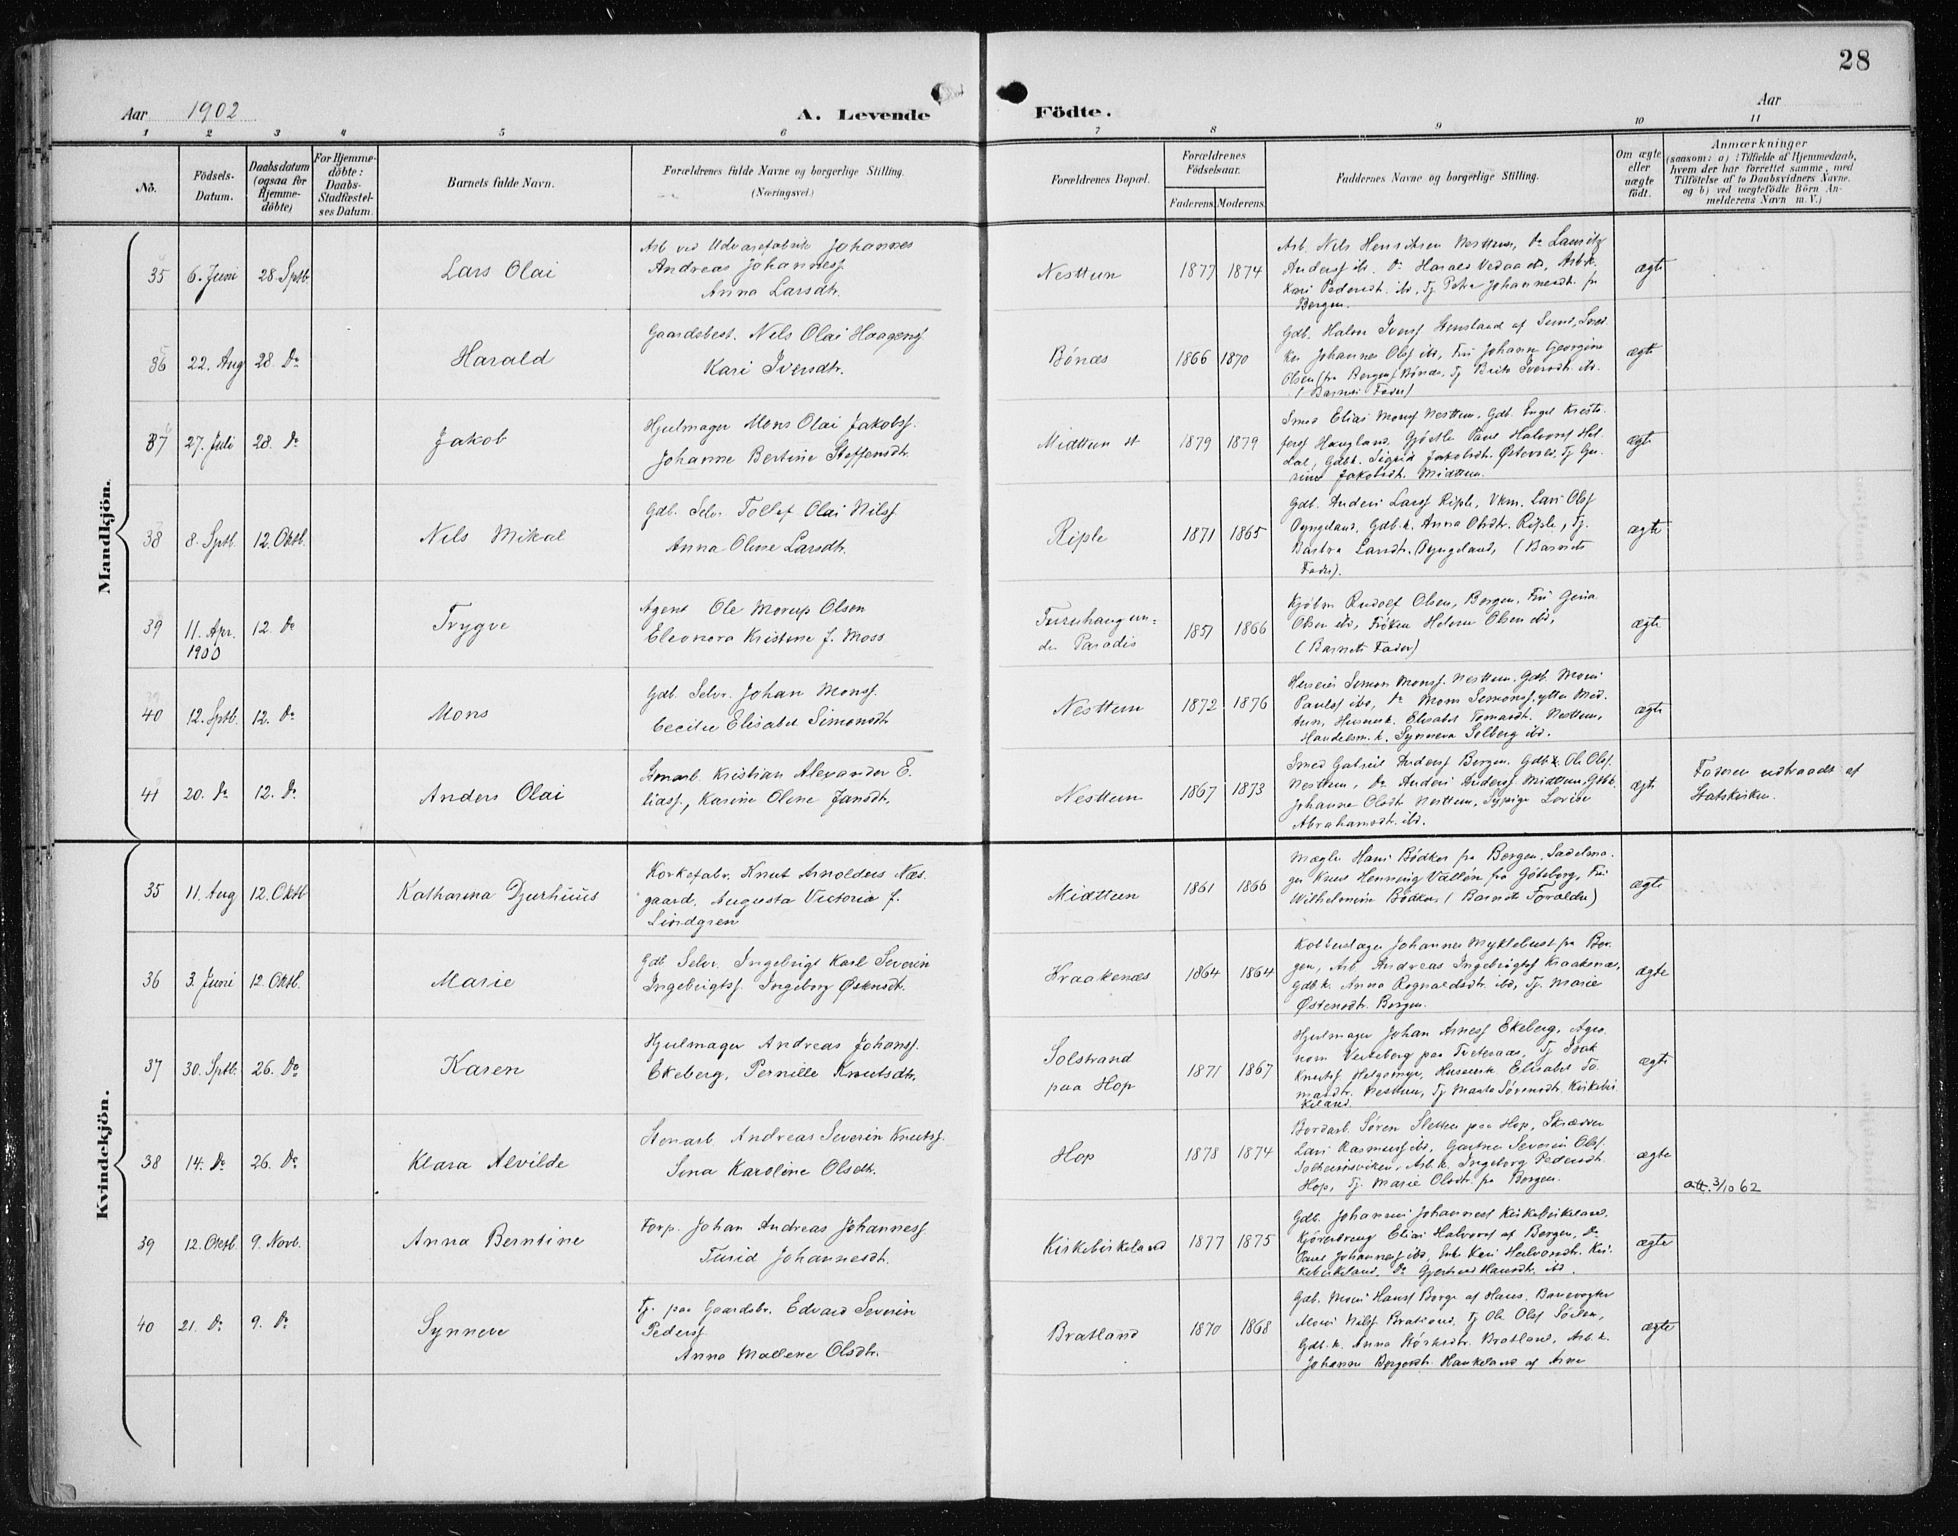 28
Aar 1902
A. Levende
Födte.
Aar
1 2 3 4 5 6 7 8 9 10 11
No.
Födsels-Datum.
Daabsdatum (ogsaa for Hjemme-döbte)
For Hjemme-döbte: Daabs-Stadfæstel-ses Datum.
Barnets fulde Navn.
Forældrenes fulde Navne og borgerlige Stilling.
(Næringsvei.)
Forældrenes Bopæl.
Forældrenes Födselsaar.
Faderens. Moderens.
Faddernes Navne og borgerlige Stilling.
Om ægte eller uægte födt.
Anmærkninger
(saasom: a) i Tilfælde af Hjemmedaab,
hvem der har forrettet samme, med
Tilföielse af to Daabsvidners Navne,
og b) ved uægtefödte Börn An-
melderens Navn m. V.)
Mandkjön.
35 6. Juni 28. Sptb. Lars Olai
Arb. ved Uldvarefabrik Johannes
Andreas Johanness.
Anna Larsdtr.
Nesttun 1877 1874
Arb. Nils Henriksen Nesttun, Do Lauritz
Anderss ibd. Do Harald Vedaa ibd, Arb.k.
Kari Pedersdt. ibd, Tj. Petra Johannesdt. fr
Bergen.
ægte
36 22. Aug 28. Do Harald
Gaardsbest. Nils Olai Haagens
Kari Iversdtr.
Bönæs 1866 1870
Gdb. Halvor Iverss Stensland af Sund, Sned
ker Johannes Olss ibd, Fru Johanne Georgine
Olsen (fra Bergen) Bönæs, Tj Brita Iversdt. ibd.
(Barnets Fader)
ægte
37 27. Juli 28. Do Jakob
Hjulmager Mons Olai Jakobss.
Johanne Bertine Steffensdtr.
Midttun st 1879 1879
Smed Elias Monss Nesttun, Gdb. Engel Kristo
ferss Haugland, Gjörtler Paul Halvorss Hel
dal, Gdbk. Sigrid Jakobsdt. Östevold, Tj Ge-
sine Jakobsdt. Midttun.
ægte
38 8. Sptb. 12. Oktb. Nils Mikal
Gdb. Selv. Tollef Olai Nilss
Anna Oline Larsdtr.
Riple 1871 1865
Gdb. Anders Larss Riple, Ukm. Lars Olss
Dyngeland, Gdb.k. Anna Olsdt. Riple, Tj.
Barbra Larsdt. Dyngeland, (Barnets
Fader).
ægte
39 11. Apr. 1900 12. Do Trygve
Agent Ole Morup Olsen
Eleonora Kristine f. Moss
Furuhaug un-
der Paradis
1851 1866
Kjöbm Rudolf Olsen, Bergen, Fru Gina
Olsen ibd, Fröken Helene Olsen ibd,
(Barnets Fader)
ægte
40 12. Sptb. 12. Do Mons
Gdb. Selv. Johan Monss.
Cecilie Elisabet Simonsdt
Nesttun 1872 1876
Huseier Simon Monss. Nesttun, Gdb. Mons
Paulss ibd, Do Mons Simonss. ytter Mid-
tun, Husmk. Elisabet Tomasdt. Nesttun,
Handelsm.k. Synneva Solberg ibd.
ægte
41 20. Do 12. Do Anders Olai
Smarb. Kristian Alexander E-
liass., Karine Oline Jansdt.
Nesttun 1867 1873
Smed Gabriel Anderss Bergen, Gdbk. Ole Olss.
Nesttun, Do Anders Anderss Midttun, Gdbk.
Johanne Olsdt Nesttun, Sypige Lovise
Abrahamsdt. ibd.
ægt
Faderen udtraadt af
Statskirken.
Kvindekjön.
35 11. Aug 12. Oktb Katharina Djurhuus
Korkefabr. Knut Arnoldus Næs
gaard, Augusta Victoria f.
Lindgren
Midttun 1861 1866
Mægler Hans Bödker fra Bergen, Sadelma-
ger Knut Henning Vallén fra Göteborg, Fru
Wilhelmine Bödker. (Barnets Forældre)
ægte
36 3. Juni 12. Oktb. Marie
Gdb Selv. Ingebrigt Karl Severin
Ingebrigtss. Ingeborg Östensdt.
Kraakenæs 1864 1864
Kobberslager Johannes Myklebust fra Ber-
gen, Arb. Andreas Ingebrigtss Kraakenæs,
Gdbk. Anna Rognaldsdt. ibd, Tj. Marie
Östensdt. Bergen.
ægte
37 30. Sptb. 26. Do Karen
Hjulmager Andreas Johanss.
Ekeberg, Pernille Knutsdt.
Solstrand
paa Hop
1871 1867
Hjulmager Johan Arness Ekeberg, Agro-
nom Verkeberg paa Tveteraas, Tj Isak
Knutss Helgemyr, Husmk. Elisabet To-
masdt. Nesttun, Tj Marta Sörensdt. Kirkebir
keland.
ægte
38 14. Do 26. Do Klara Alvilde
Stenarb Andreas Severin Knutss.
Sina Karoline Olsdt.
Hop 1878 1874
Bordarb. Sören Sletten paa Hop, Skrædder
Lars Rasmuss ibd, Gartner Severin Olss.
Solheimsviken, Arb.k. Ingeborg Pedersdt.
Hop, Tj. Marie Olsdt. fra Bergen.
ægte
att. 3/10 62
39 12. Oktb. 9. Novb. Anna Berntine
Forp. Johan Andreas Johanness
Turid Johannesdt.
Kirkebirkeland 1877 1875
Gdb. Johannes Johanness Kirkebirkeland,
Kjöredreng Elias Halvorss af Bergen, Do
Paul Johanness ibd, Enke Kari Halvorsdt. Kir-
kebirkeland, Do Gjertrud Hansdt. ibd.
ægte
40 21. Do 9. Do Synneve
Tj. paa Gaardsbr. Edvard Severin
Pederss
Anna Mallene Olsdt.
Bratland 1870 1868
Gdb. Mons Hanss Borge af Haus, Banevogter
Mons Nilss Bratland, Tj Ole Olss Sörlen,
Gdb.k. Anna Störksdtr. Bratland, Arb.k.
Johanne Bergesdt. Haukeland af Arne
ægte